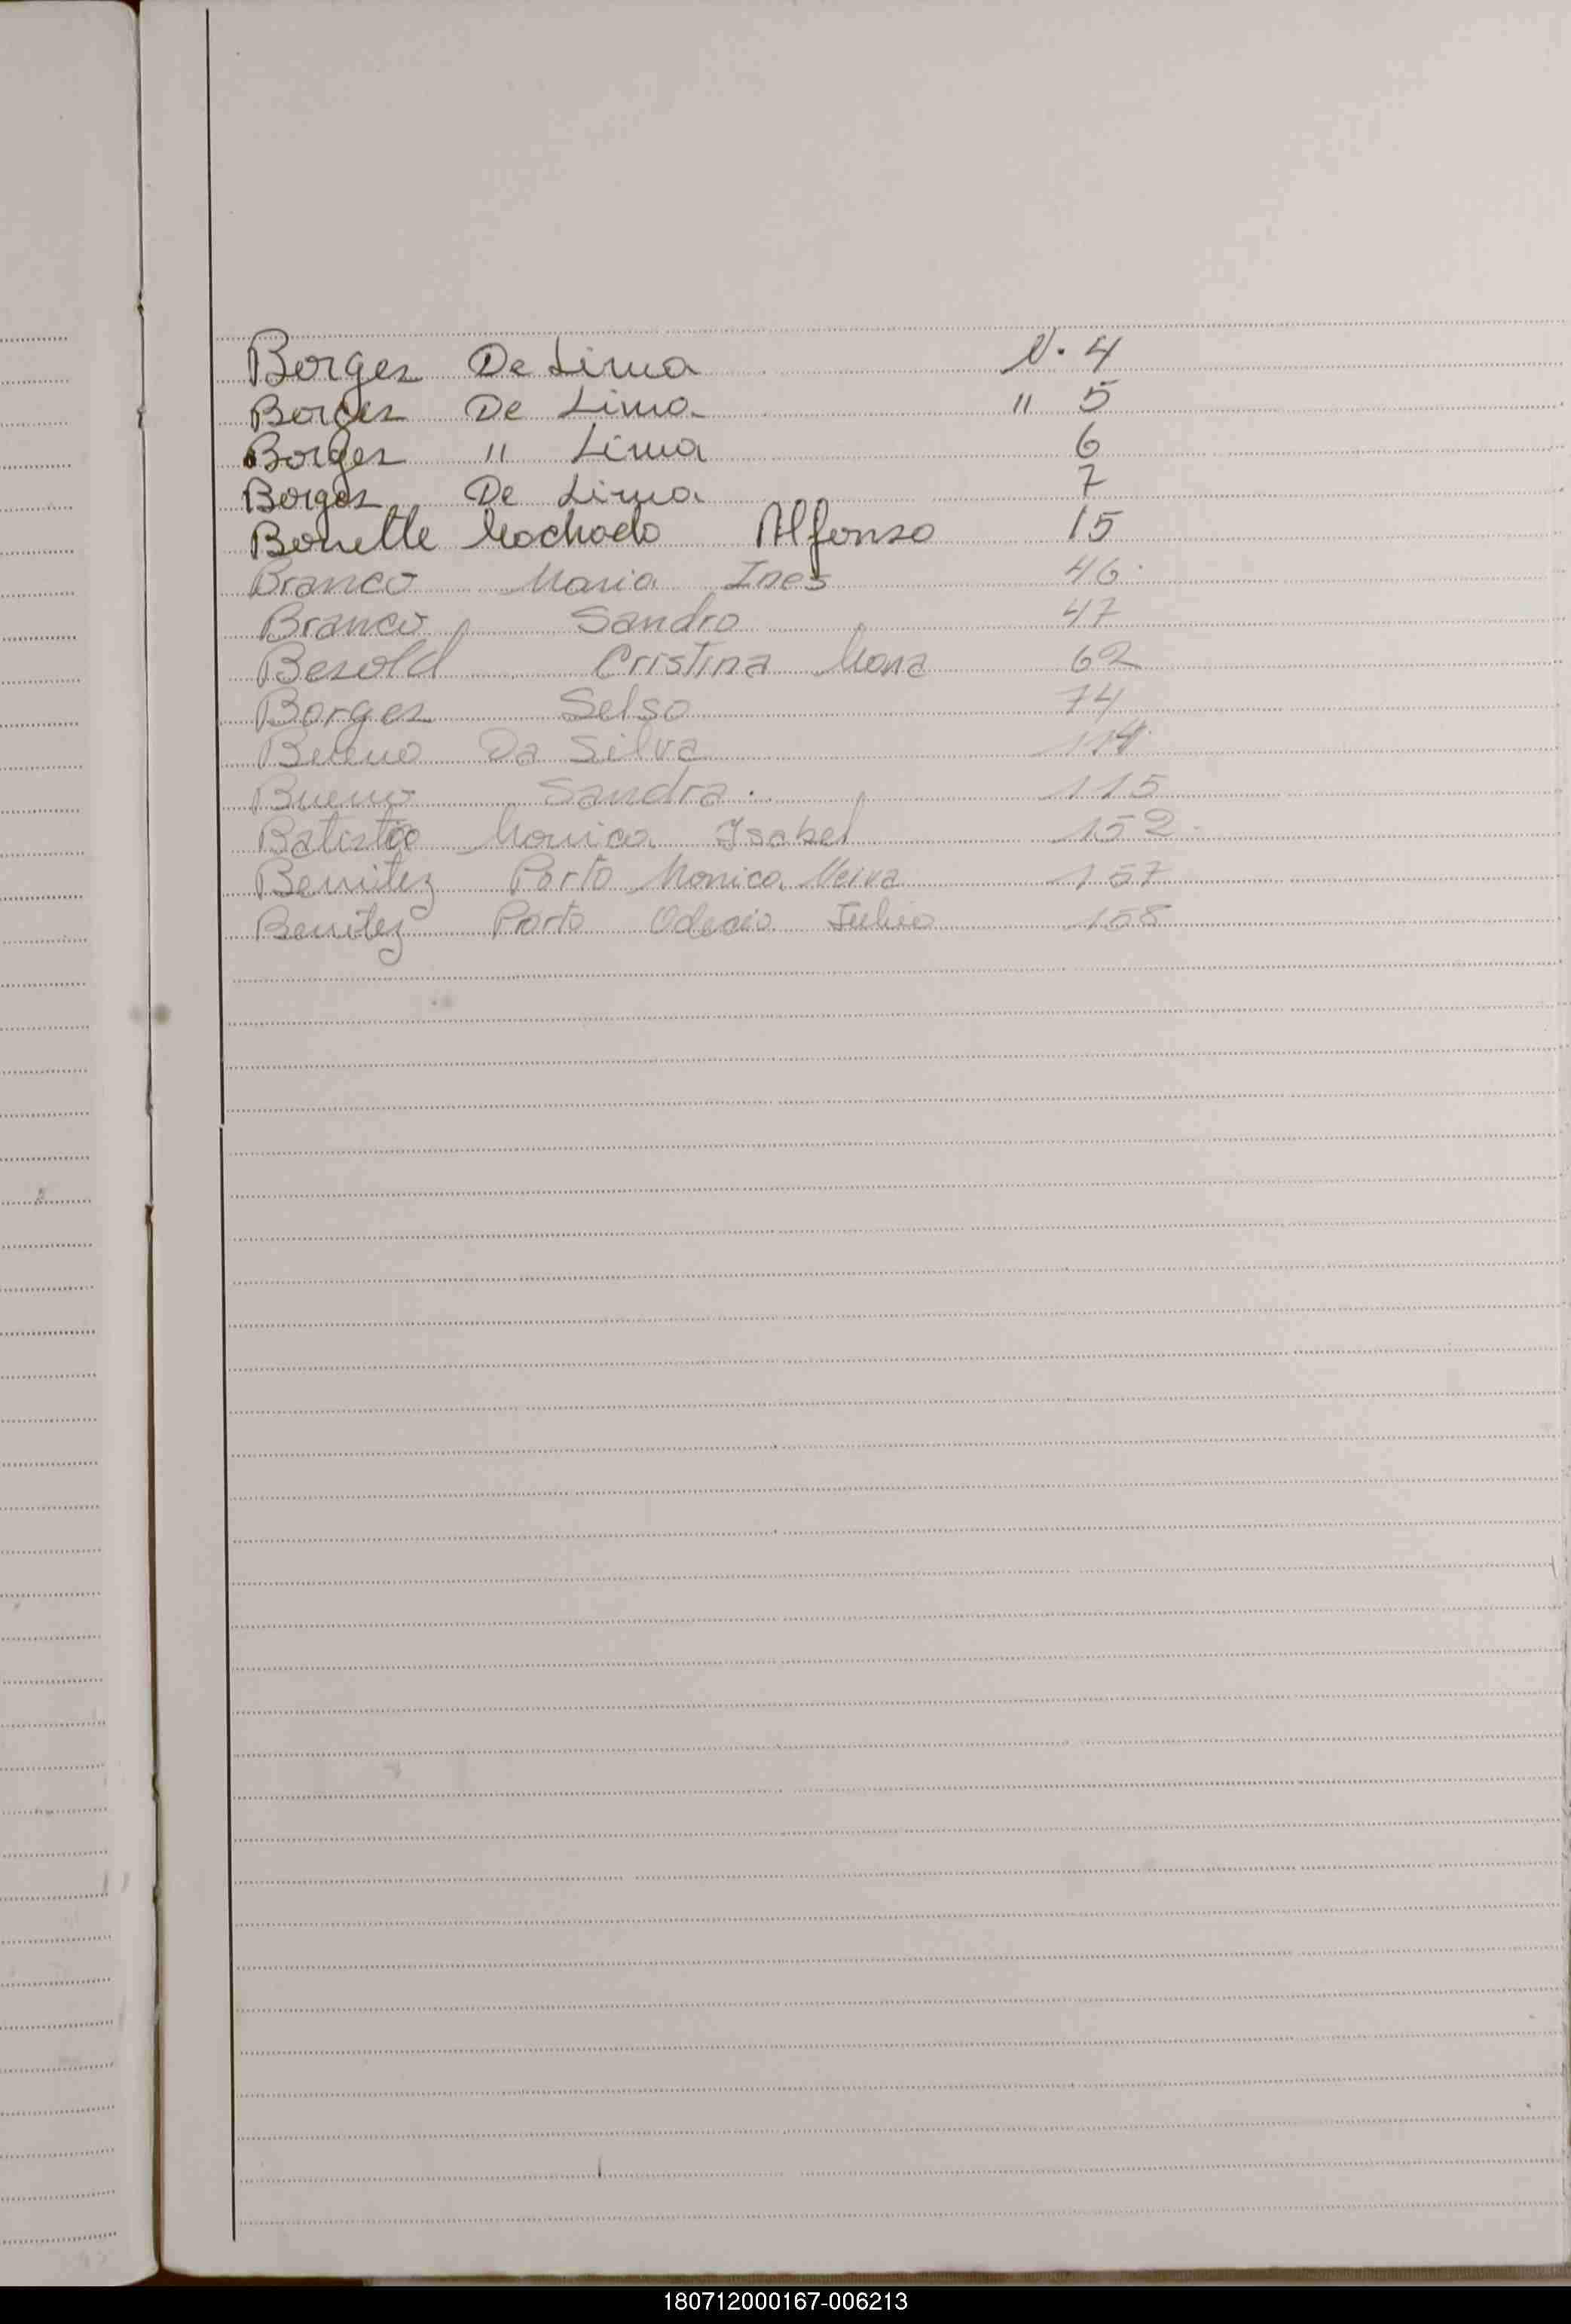 Borges De Lima N. 4
Borges De Lima " 5
Borges " Lima 6
Borges De Lima 7
Bonette Machado Alfonso 15
Branco Maria Ines 46
Branco Sandro 47
Besold Cristina Mona 62
Borges Selso 74
Bueno Da Silva 114
Bueno Sandra. 115
Batista Monica Isabel 152
Benitez Porto Monica Neiva 157
Benitez Porto Julio 158
180712000167-006213